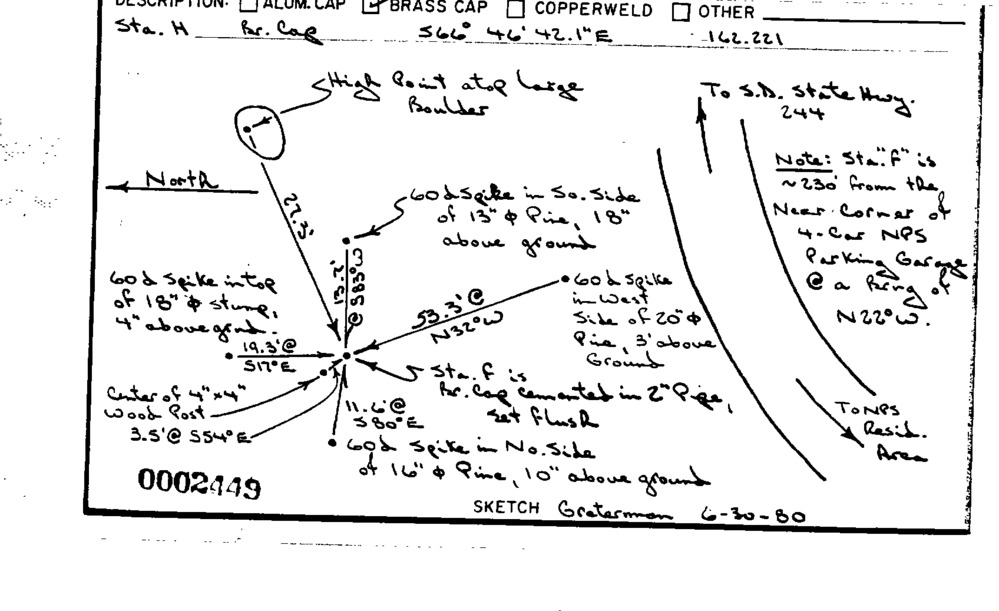 DESCRIPTION: ☐ ALUM. CAP ☑ BRASS CAP ☐ COPPERWELD ☐ OTHER
Sta. H Br. Cap S66° 46' 42.1" E 162.221
High Point atop Large
Boulder
To S.D. State Hwy.
244
North
27.3'
60d Spike in So. Side
of 13" φ Pine, 18"
above ground
Note: Sta. "F" is
~230' from the
Near Corner of
4-Car NPS
Parking Garage
@ a Brng of
N22°W.
13.2'
@ S83°W
60d Spike in top
of 18" φ stump,
4" above grnd.
60d Spike
in West
Side of 20" φ
Pine, 3' above
Ground
53.3' @
N32°W
19.3' @
S17°E
Sta. F is
Br. Cap cemented in 2" Pipe,
set flush
Center of 4" x 4"
Wood Post
3.5' @ S54°E
11.6' @
S80°E
60d Spike in No. Side
of 16" φ Pine, 10" above ground
To NPS
Resid.
Area
0002449
SKETCH Graterman 6-30-80